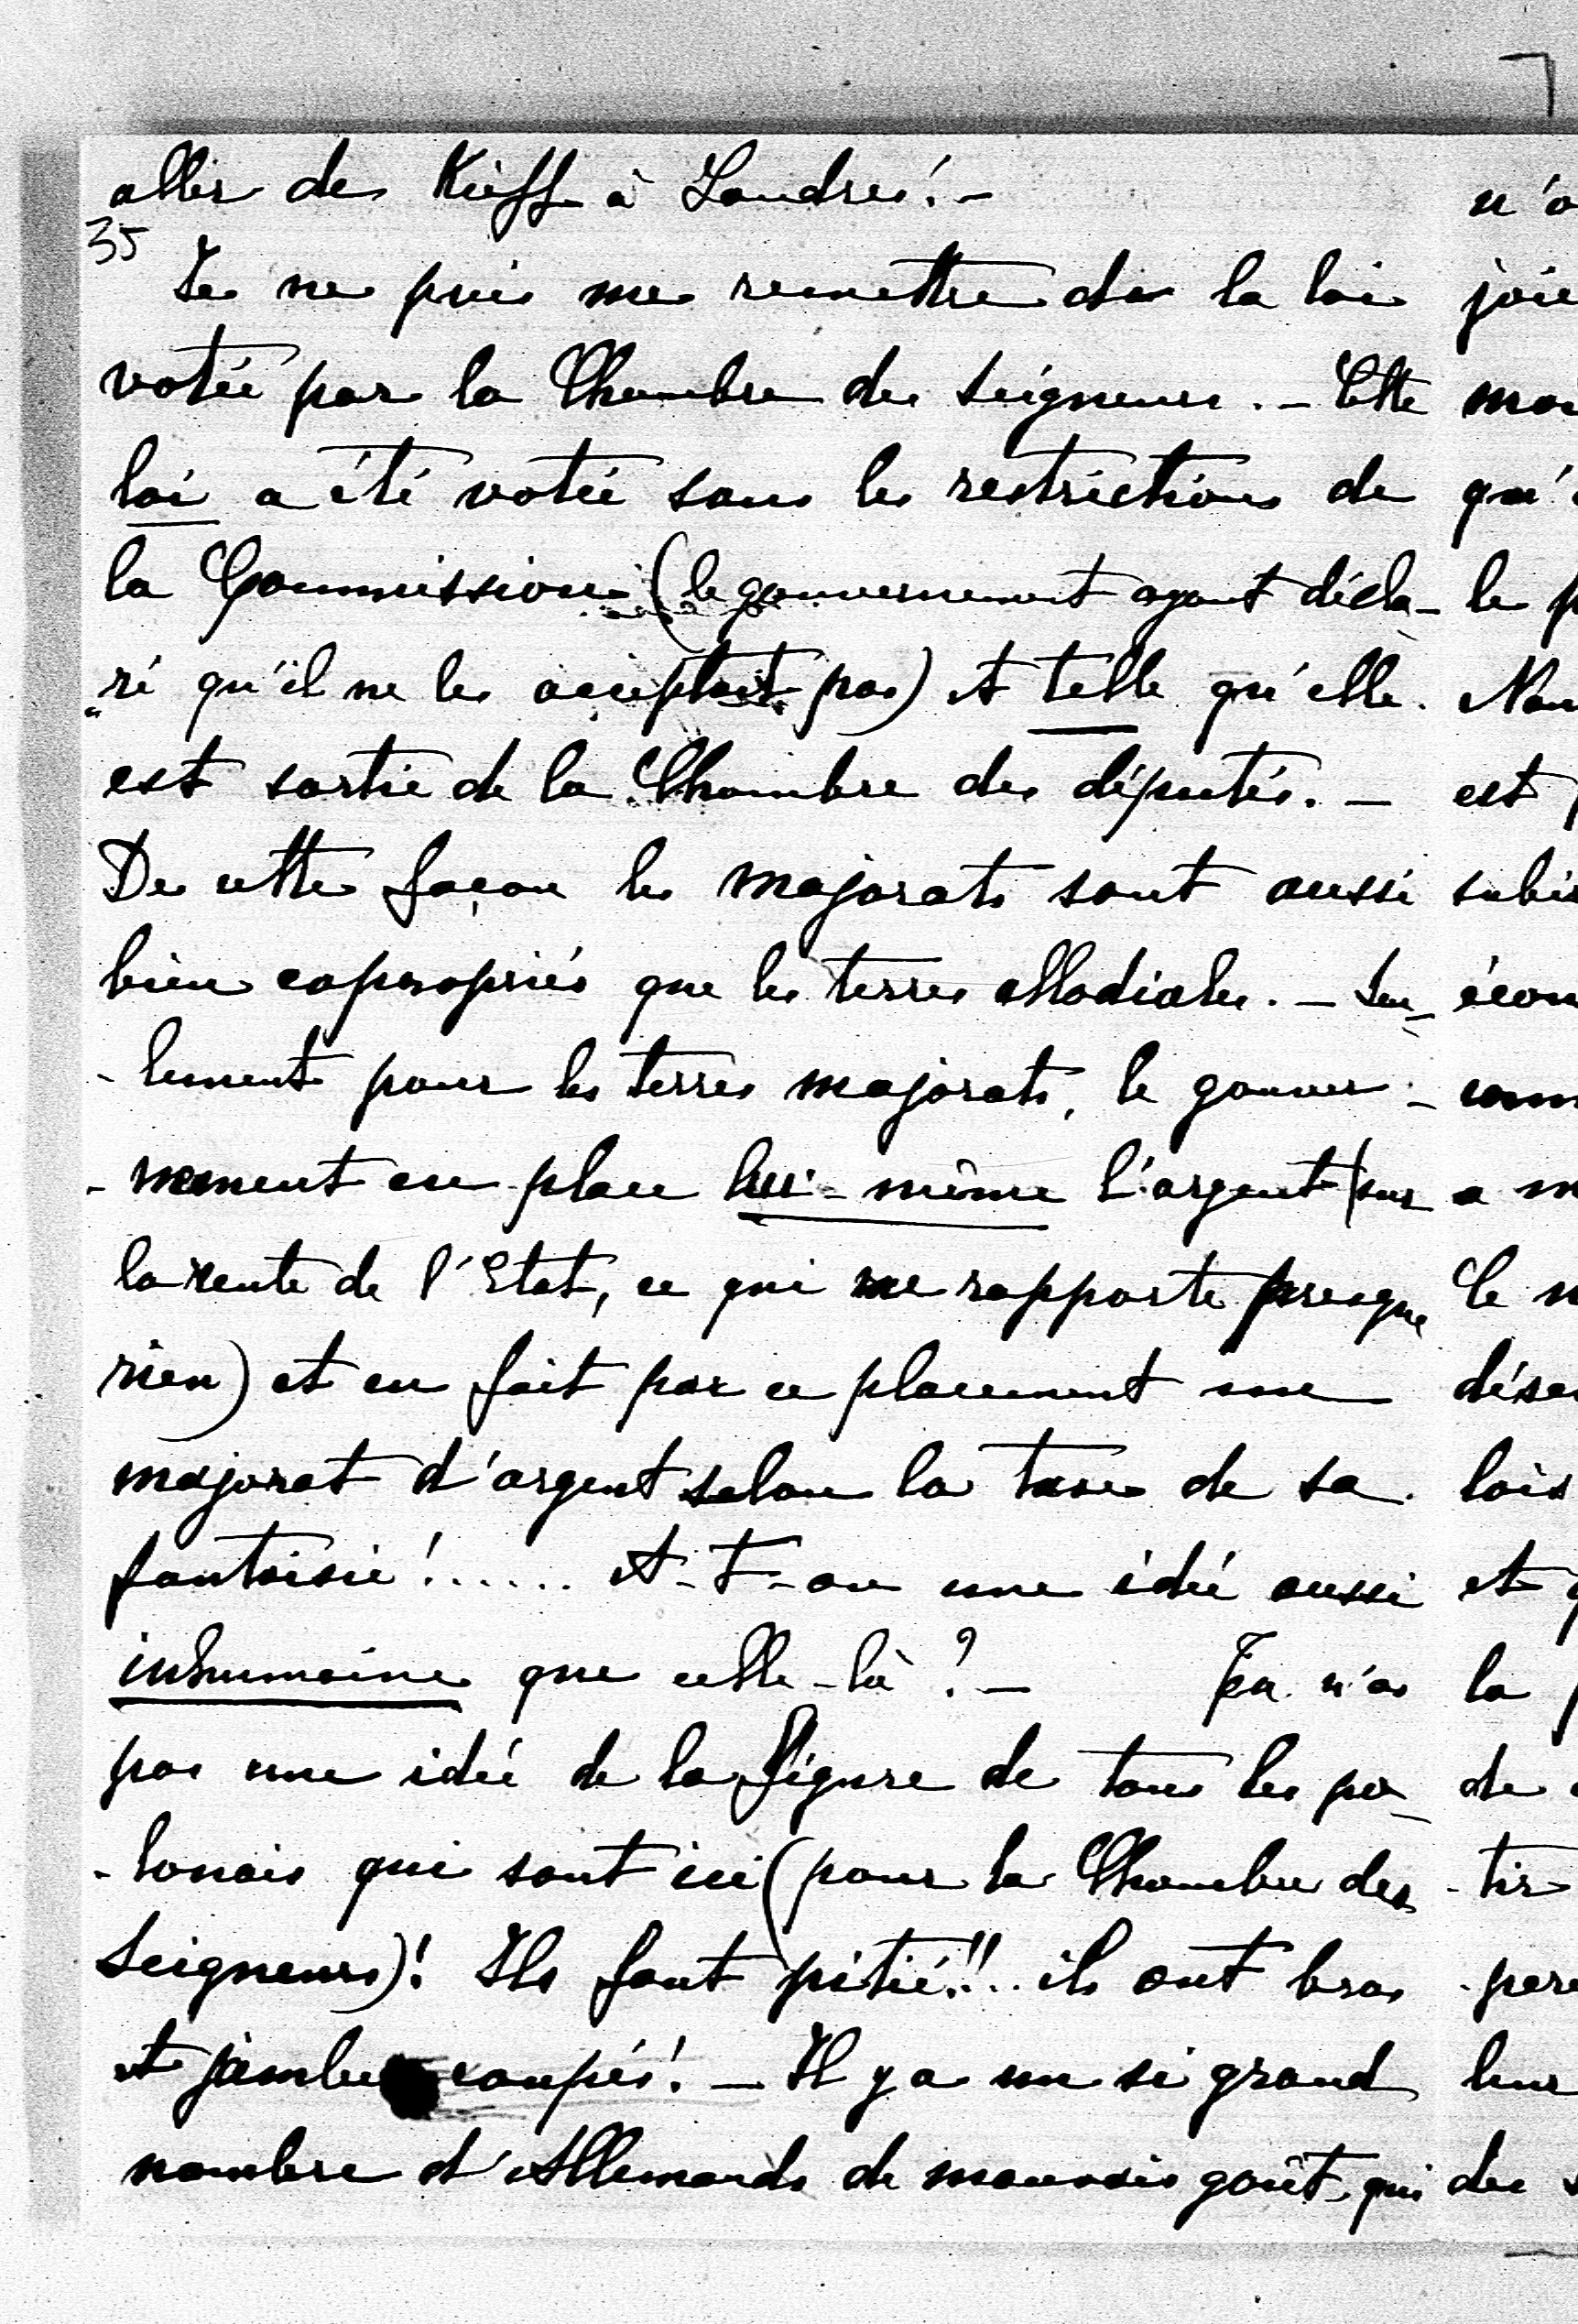 7
aller de Kieff à Londres! -
35
Je ne puis me remettre de la loi
votée par la Chambre des Seigneurs. - Cette
loi a été votée sans les restrictions de
la Commission (le gouvernement ayant décla-
"ré qu'il ne les acceptait pas) et telle qu'elle
est sortie de la Chambre des députés. -
De cette façon les majorats sont aussi
bien expropriés que les terres allodiales. - Seu-
- lement pour les terres majorats, le gouver -
- nement en place lui-même l'argent (sur
la rente de l'Etat, ce qui ne rapporte presque
rien) et en fait par ce placement un
majorat d'argent selon la taxe de sa
fantaisie! ...... A-t-on une idée aussi
inhumaine que celle-là? - Tu n'as
pas une idée de la figure de tous les po-
- lonais qui sont ici (pour la Chambre des
Seigneurs)! Ils font pitié!!.. ils ont bras
et jambes coupés! - Il y a un si grand
nombre d'Allemands de mauvais goût, qui
n'a
joie
moi
qu'
le p
est
écou
com
a m
Ce n
lois
et q
la
de
- tir
leur
des